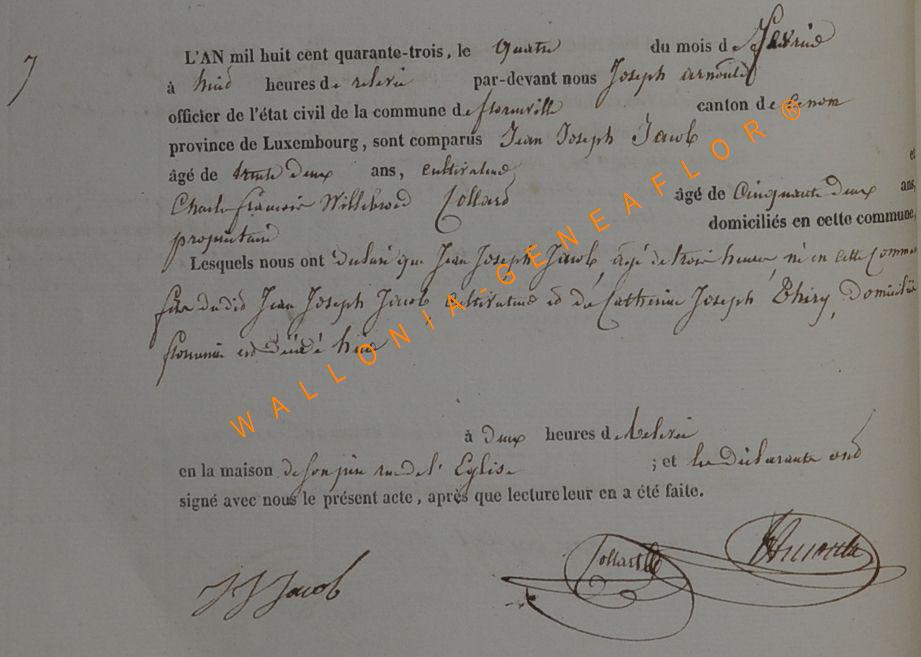 7
L'AN mil huit cent quarante-trois, le quatre du mois de
à heures de relevée par-devant nous Joseph Arnould
officier de l'état civil de la commune de florenville canton de
province de Luxembourg, sont comparus Jean Joseph Jacob
âgé de trente deux ans, cultivateur et
Charle françois Willebrord Collard âgé de Cinquante deux ans,
proprietaire domiciliés en cette commune,
Lesquels nous ont déclaré que Jean Joseph Jacob âgé de trois heures né en cette Commune
fils dudit Jean Joseph Jacob cultivateur et de Catherine Joseph Thiry, domiciliés
est décédé hier
à deux heures de Relevée
en la maison de son père rue de l'Eglise ; et les déclarants ont
signé avec nous le présent acte, après que lecture leur en a été faite.
JJ Jacob Collard Arnould
WALLONIA-GENEAFLOR®